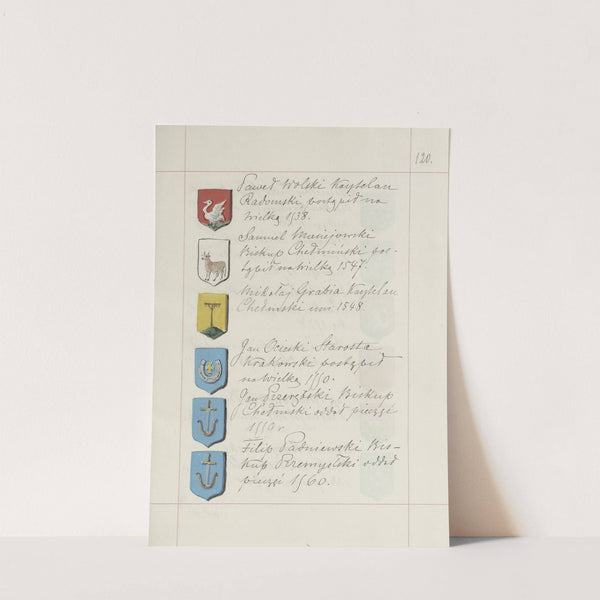 120.
Paweł Wolski Kasztelan
Radomski, postąpił na
wielką 1538.
Samuel Maciejowski
Biskup Chełmiński pos-
tąpił na wielką 1547.
Mikołaj Grabia Kasztelan
Chełmski um 1548.
Jan Ocieski Starosta
Krakowski postąpił
na wielką 1550.
Jan Przerębski, Biskup
Chełmski oddał pieczęć
Filip Padniewski Bis-
kup Przemyślski oddał
pieczęć 1560.